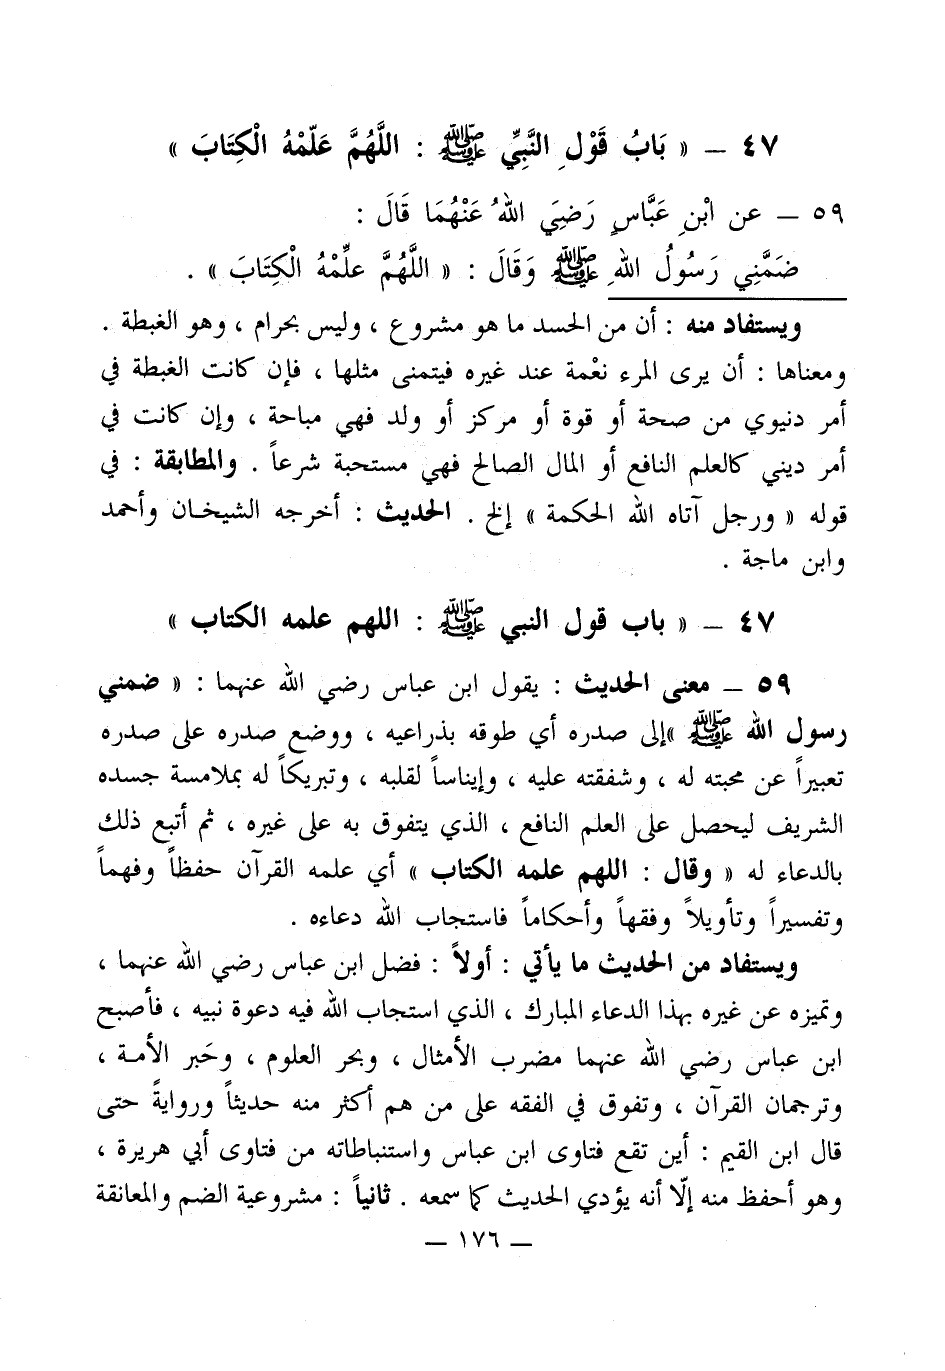 ٤٧ ــ « بَابُ قَوْلِ النَّبِيِّ ﷺ : اللَّهُمَّ عَلِّمْهُ الْكِتَابَ »
٥٩ ــ عن ابْنِ عَبَّاسٍ رَضِيَ اللهُ عَنْهُمَا قَالَ :
ضَمَّنِي رَسُولُ اللهِ ﷺ وَقَالَ : « اللَّهُمَّ علِّمْهُ الْكِتَابَ » .
ويستفاد منه : أن من الحسد ما هو مشروع ، وليس بحرام ، وهو الغبطة .
ومعناها : أن يرى المرء نعْمة عند غيره فيتمنى مثلها ، فإن كانت الغبطة في
أمر دنيوي من صحة أو قوة أو مركز أو ولد فهي مباحة ، وإن كانت في
أمر ديني كالعلم النافع أو المال الصالح فهي مستحبة شرعاً . والمطابقة : في
قوله « ورجل آتاه الله الحكمة » إلخ . الحديث : أخرجه الشيخـان وأحمد
وابن ماجة .
٤٧ ــ « باب قول النبي ﷺ : اللهم علمه الكتاب »
٥٩ ــ معنى الحديث : يقول ابن عباس رضي الله عنهما : « ضمني
رسول الله ﷺ »إلى صدره أي طوقه بذراعيه ، ووضع صدره على صدره
تعبيراً عن محبته له ، وشفقته عليه ، وإيناساً لقلبه ، وتبريكاً له بملامسة جسده
الشريف ليحصل على العلم النافع ، الذي يتفوق به على غيره ، ثم أتبع ذلك
بالدعاء له « وقال : اللهم علمه الكتاب » أي علمه القرآن حفظاً وفهماً
وتفسيراً وتأويلاً وفقهاً وأحكاماً فاستجاب الله دعاءه .
ويستفاد من الحديث ما يأتي : أولاً : فضل ابن عباس رضي الله عنهما ،
وتميزه عن غيره بهذا الدعاء المبارك ، الذي استجاب الله فيه دعوة نبيه ، فأصبح
ابن عباس رضي الله عنهما مضرب الأمثال ، وبحر العلوم ، وحَبر الأمـة ،
وترجمان القرآن ، وتفوق في الفقه على من هم أكثر منه حديثاً وروايةً حتى
قال ابن القيم : أين تقع فتاوى ابن عباس واستنباطاته من فتاوى أبي هريرة ،
وهو أحفظ منه إلّا أنه يؤدي الحديث كما سمعه . ثانياً : مشروعية الضم والمعانقة
ــ ١٧٦ ــ